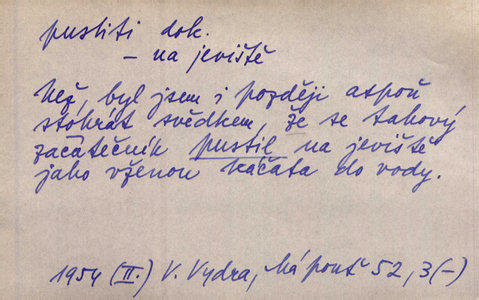 pustiti dok.
– na jeviště
Než, byl jsem i později aspoň
stokrát svědkem, že se takový
začátečník pustil na jeviště
jako vženou káčata do vody.
1954 (II.) V. Vydra, Má pouť 52, 3 (–)